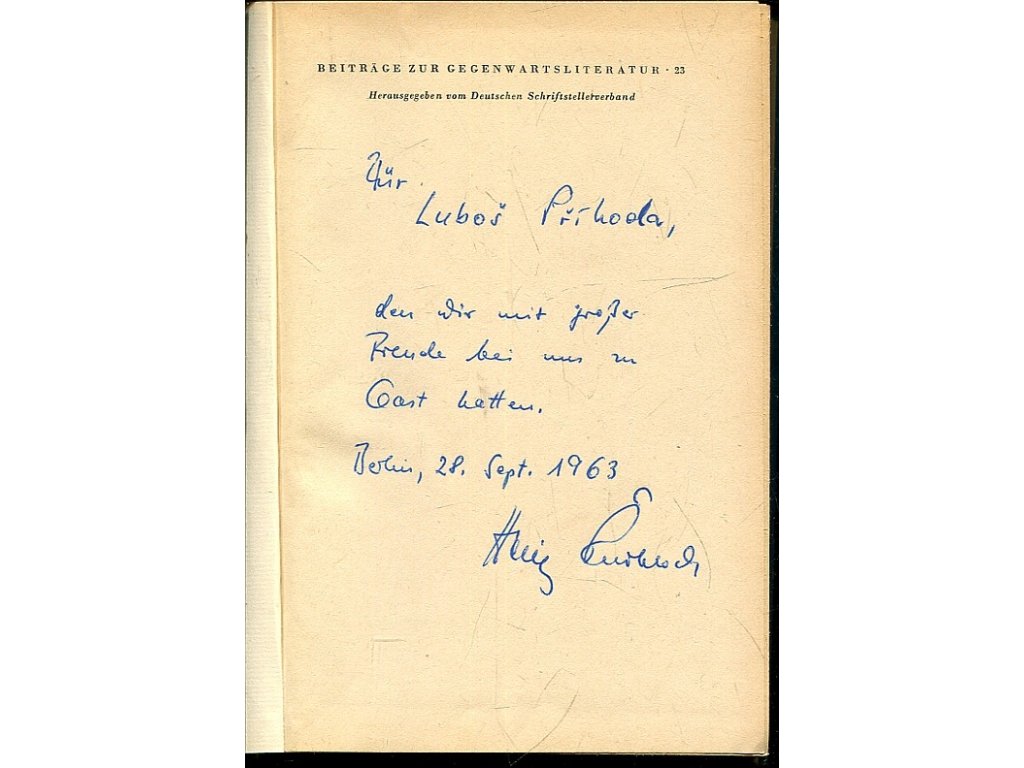 BEITRÄGE ZUR GEGENWARTSLITERATUR · 23
Herausgegeben vom Deutschen Schriftstellerverband
Für
Luboš Příhoda,
den wir mit großer
Freude bei uns zu
Gast hatten.
Berlin, 28. Sept. 1963
Heinz Knobloch